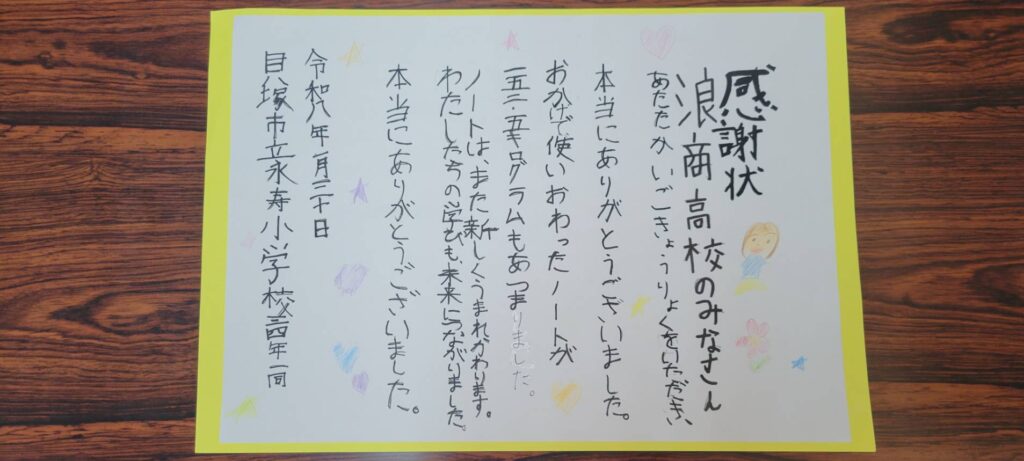 感謝状
浪商高校のみなさん
あたたかいごきょうりょくをいただき、
本当にありがとうございました。
おかげで使いおわったノートが
キログラムもあつまりました。
ノートは、また新しくうまれかわります。
わたしたちの学びも未来につながりました。
本当にありがとうございました。
令和八年一月三十日
貝塚市立永寿小学校四年一同